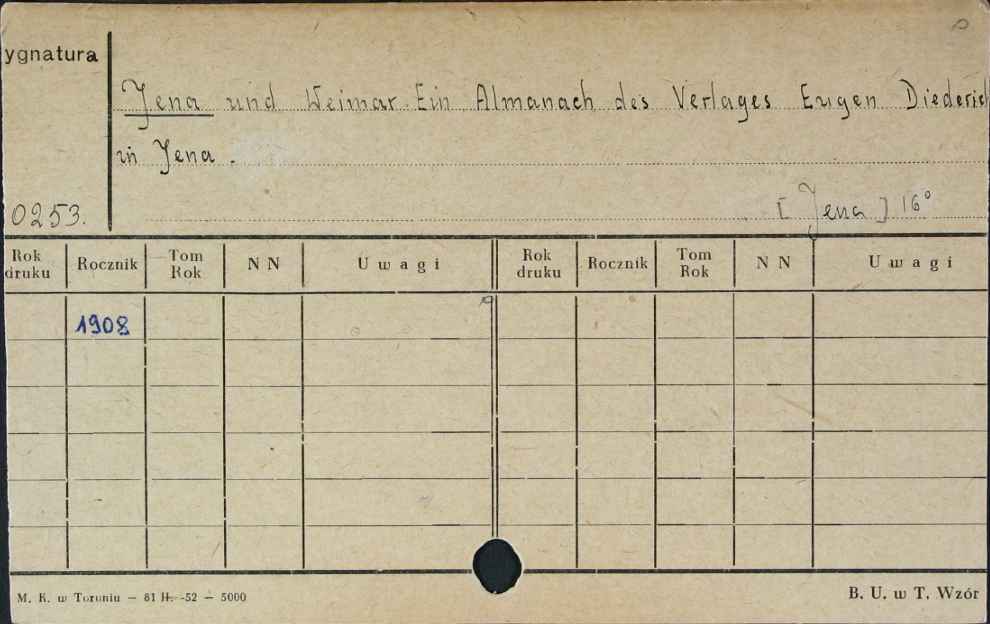 ygnatura
Jena und Weimar. Ein Almanach des Verlages Eugen Diederich
in Jena.
0253.
[Jena] 16°
Rok druku Rocznik Tom Rok N N Uwagi Rok druku Rocznik Tom Rok N N Uwagi
1908
M. K. w Toruniu — 81 H. -52 — 5000
B. U. w T. Wzór